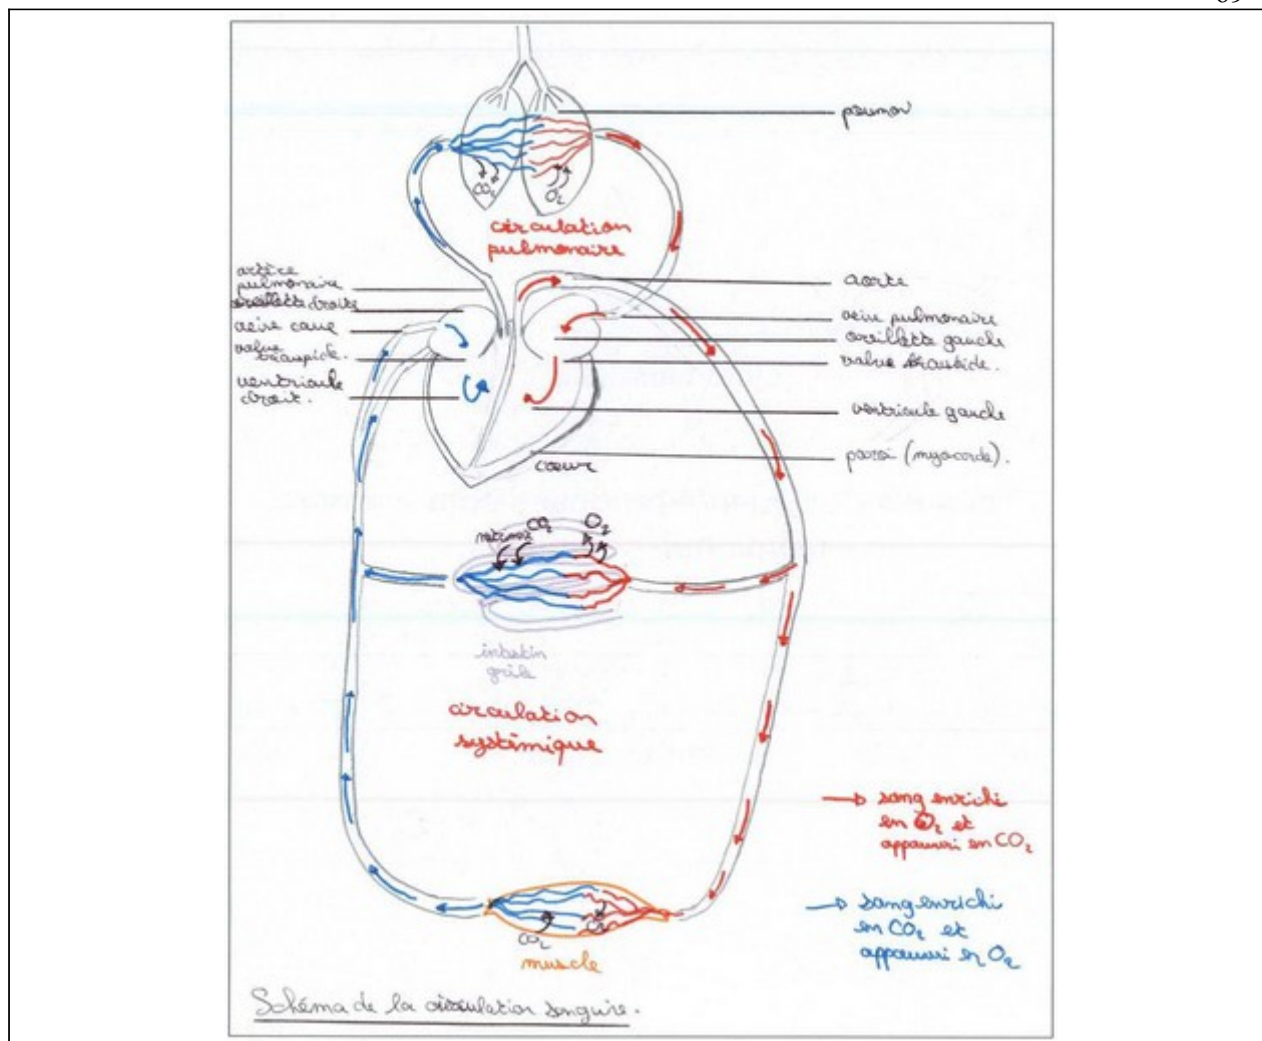 poumon
CO₂
O₂
circulation
pulmonaire
artère
pulmonaire
oreillette droite
veine cave
valve
ventricule
droit.
aorte
veine pulmonaire
oreillette gauche
valve
ventricule gauche
paroi (myocarde).
cœur
CO₂
O₂
intestin
grêle
circulation
systémique
sang enrichi
en O₂ et
appauvri en CO₂
sang enrichi
en CO₂ et
appauvri en O₂
CO₂
muscle
Schéma de la circulation sanguine.